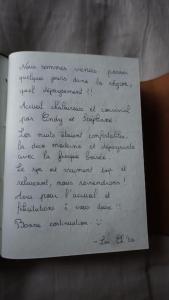 Nous sommes venus passer
quelques jours dans la région,
quel dépaysement !!
Accueil chaleureux et convivial
par Cindy et Stéphane.
Les nuits étaient confortables,
la déco moderne et dépaysante
avec la fresque boisée.
Le spa est vraiment sup et
relaxant, nous reviendrons !
Merci pour l'accueil et
félicitations à vous deux !!
Bonne continuation :)